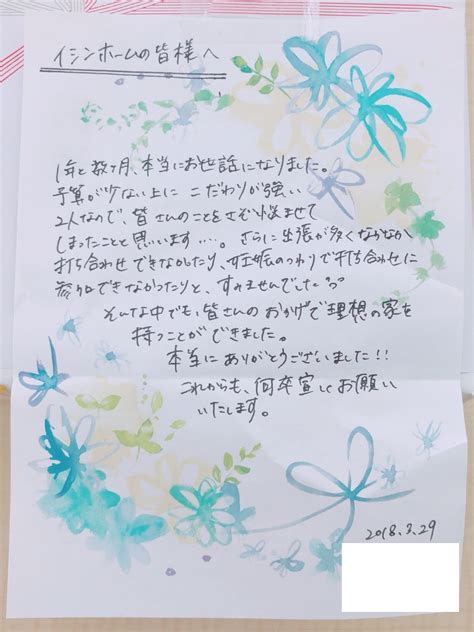 イシンホームの皆様へ
1年と数ヶ月、本当にお世話になりました。
予算が少ない上に こだわりが強い
2人なので、皆さんのことをさぞ悩ませて
しまったことと思います…。さらに出張が多くなかなか
打ち合わせできなかったり、妊娠のつわりで打ち合わせに
参加できなかったりと、すみませんでした
そんな中でも、皆さんのおかげで理想の家を
持つことができました。
本当にありがとうございました!!
これからも、何卒宜しくお願い
いたします。
2018.3.29